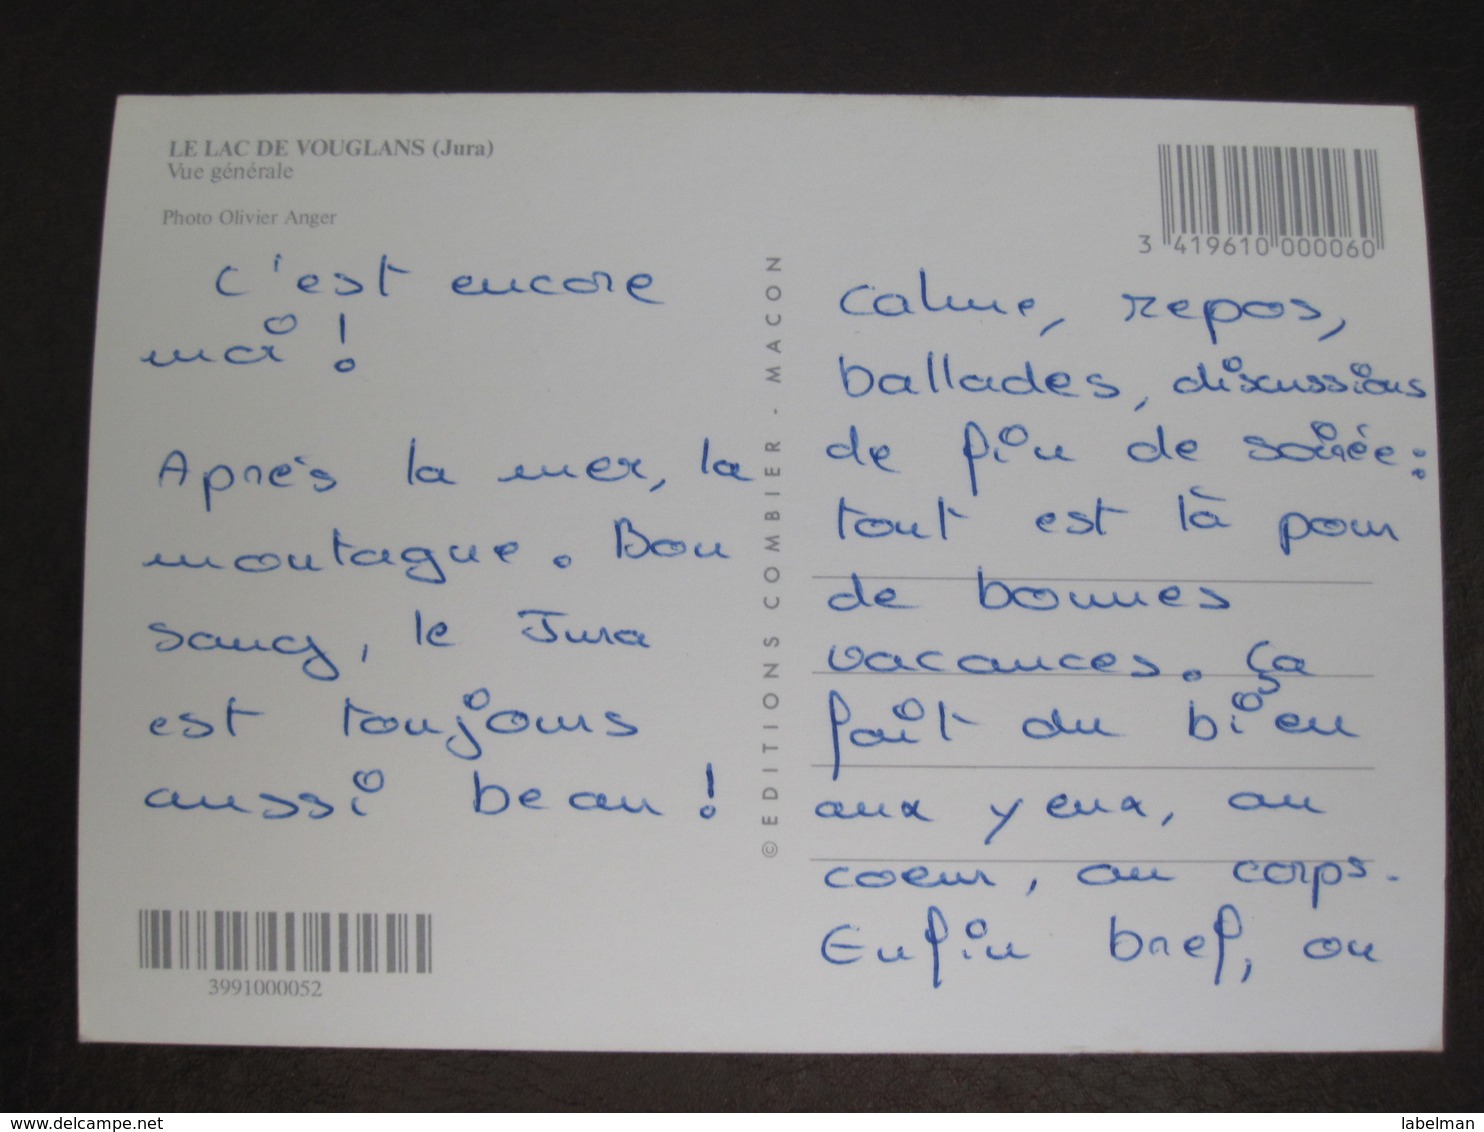 LE LAC DE VOUGLANS (Jura)
Vue générale
Photo Olivier Anger
C'est encore
moi !
Après la mer, la
montagne. Bon
sang, le Jura
est toujours
aussi beau !
3991000052
© EDITIONS COMBIER - MACON
3 419610 000060
calme, repos,
ballades, discussions
de fin de soirée :
tout est là pour
de bonnes
vacances. Ça
fait du bien
aux yeux, au
coeur, au corps.
Enfin bref, on
delcampe.net
labelman